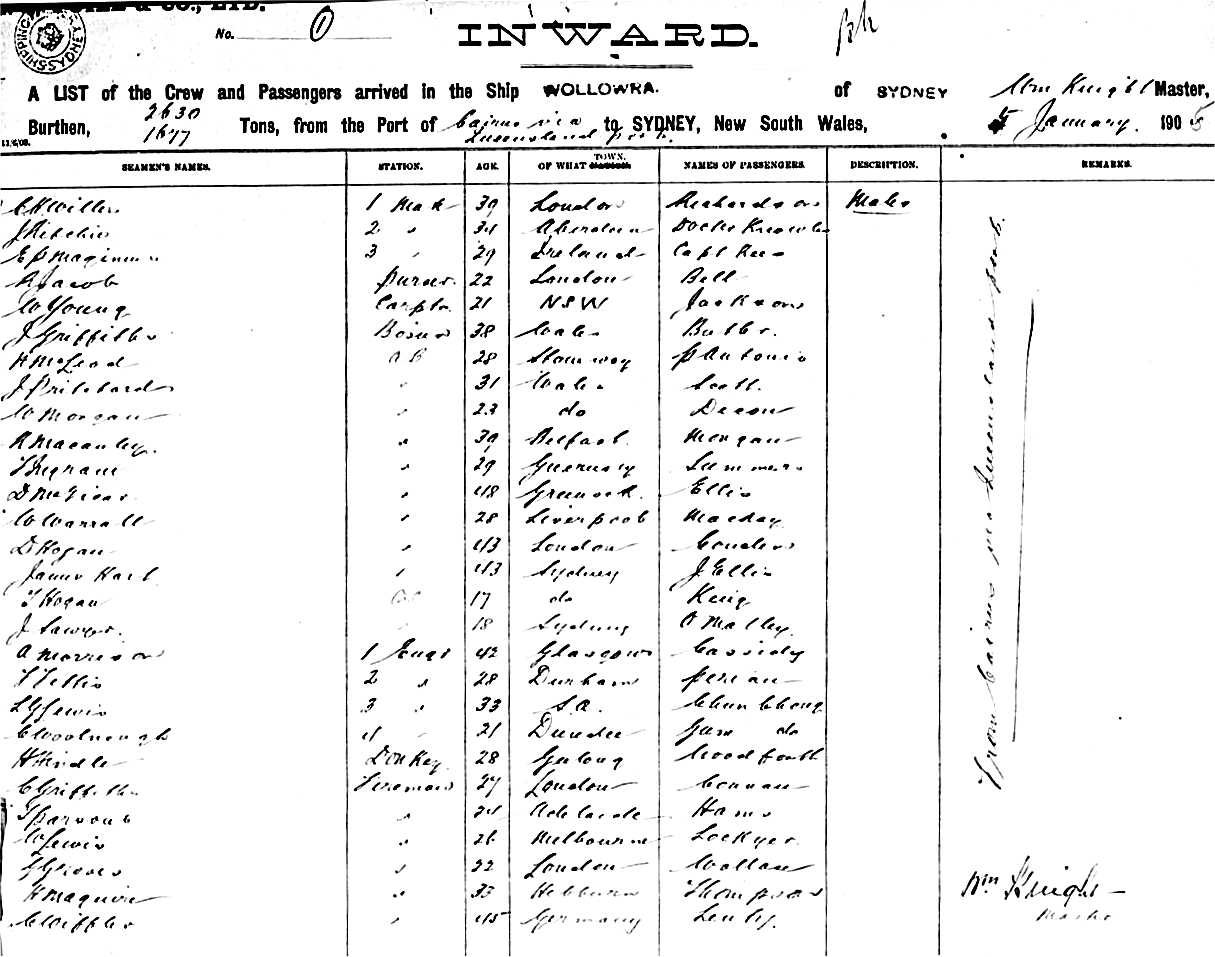 & CO., LTD.
SHIPPING SYDNEY
No. 1
INWARD.
A LIST of the Crew and Passengers arrived in the Ship WOLLOWRA. of SYDNEY Wm Knight Master,
Burthen, 2630 1677 Tons, from the Port of Cairns via Queensland to SYDNEY, New South Wales, January. 1905
SEAMEN'S NAMES. STATION. AGE. OF WHAT TOWN. NAMES OF PASSENGERS. DESCRIPTION. REMARKS.
1 Mate 39 London Richardson Males
J Ritchie 2 " 34 Aberdeen Doctr Knowles
E P Maginnes 3 " 29 Ireland Capt Rees
R Jacob Purser 22 London Bell
W Young Carptr 21 NSW Jackson
J Griffiths Bosun 38 Wales Butler
R McLeod AB 28 Stornway P Antonio
J Pritchard " 31 Wales Scott
W Morgan " 23 do Deeon
R Macauley " 39 Belfast Morgan
T Ingram " 29 Guernsey Summers
" 48 Greenock Ellis
W Warrall " 28 Liverpool Mackay
D Hogan " 43 London
James Hart " 43 Sydney J Ellis
T Hogan 17 do King
J Sawyer 18 Sydney O Malley
A Morrison 1 Engr 42 Glasgow Cassidy
2 " 28 Durham
L G Lewis 3 " 33 S.A. Chun Chong
C Woolnough 4 " 21 Dundee Gum do
H Hindle Donkey 28 Geelong
C Griffiths Fireman 27 London
T Parsons " 24 Adelaide Hams
W Lewis " 26 Melbourne Lockyer
J Groves " 22 London Wallace
H Maguire " 33 Hebburn Thompson
" 45 Germany
From Cairns via Queensland ports.
Wm Knight
Master